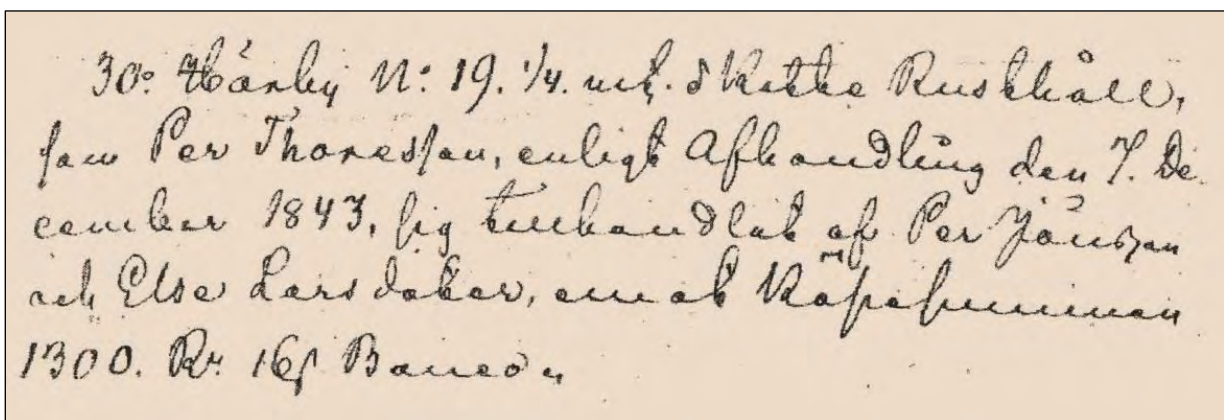 30o: Hörby N: 19. 1/4. mt. Skatte Rusthåll,
som Per Thoresson, enligt Afhandling den 7. De-
cember 1843, sig tillhandlat af Per Jönsson
och Else Larsdotter, emot Köpesumman
1300. Rr. 16s Banco„